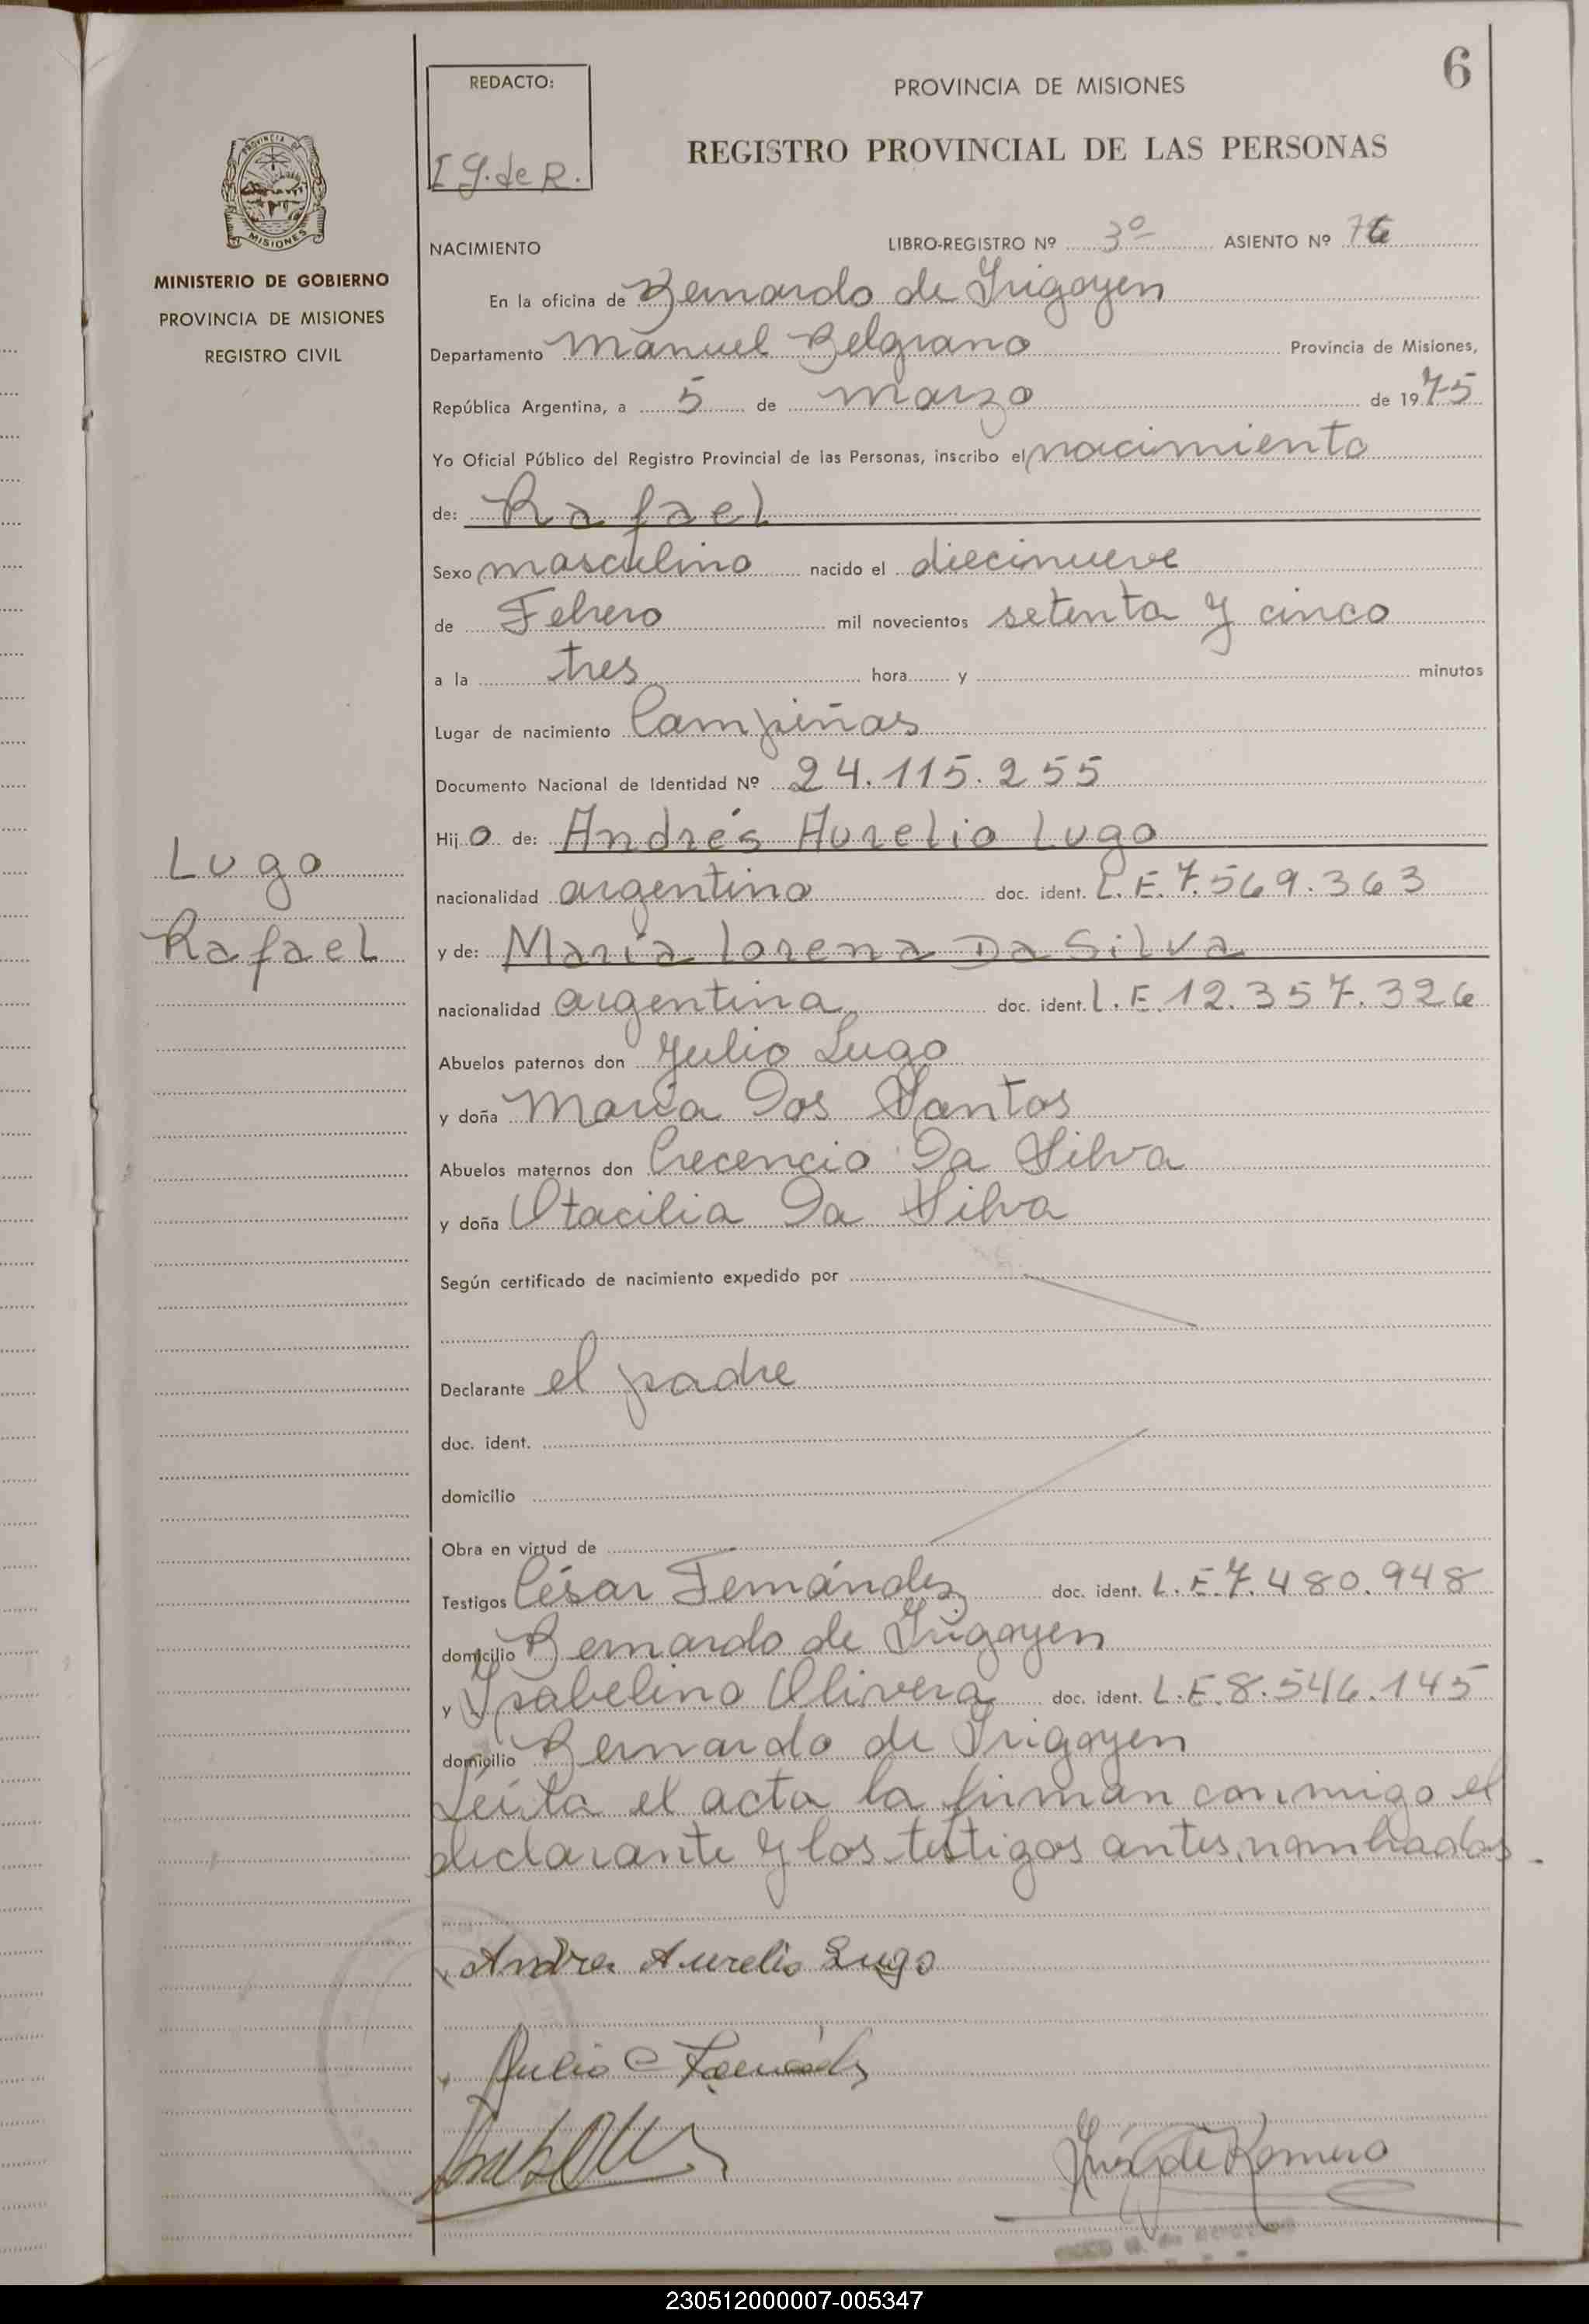 6
REDACTO:
I G. de R.
PROVINCIA DE MISIONES
REGISTRO PROVINCIAL DE LAS PERSONAS
PROVINCIA DE
MISIONES
MINISTERIO DE GOBIERNO
PROVINCIA DE MISIONES
REGISTRO CIVIL
NACIMIENTO
LIBRO-REGISTRO Nº 3º ASIENTO Nº 76
En la oficina de Bernardo de Irigoyen
Departamento Manuel Belgrano Provincia de Misiones,
República Argentina, a 5 de marzo de 1975
Yo Oficial Público del Registro Provincial de las Personas, inscribo el nacimiento
de: Rafael
Sexo masculino nacido el diecinueve
de Febrero mil novecientos setenta y cinco
a la tres hora y minutos
Lugar de nacimiento Campiñas
Documento Nacional de Identidad Nº 24.115.255
Hijo de: Andrés Aurelio Lugo
nacionalidad argentino doc. ident. L.E. 7.569.363
Lugo
Rafael
y de: María Lorena Da Silva
nacionalidad argentina doc. ident. L.E. 12.357.326
Abuelos paternos don Julio Lugo
y doña María Dos Santos
Abuelos maternos don Crecencio Da Silva
y doña Otacilia Da Silva
Según certificado de nacimiento expedido por
Declarante el padre
doc. ident.
domicilio
Obra en virtud de
Testigos César Fernández doc. ident. L.E. 7.480.948
domicilio Bernardo de Irigoyen
y Ysabelino Olivera doc. ident. L.E. 8.546.145
domicilio Bernardo de Irigoyen
Leída el acta la firman conmigo el
declarante y los testigos antes nombrados.
Andres Aurelio Lugo
Julio C Fernández
de Romero
230512000007-005347